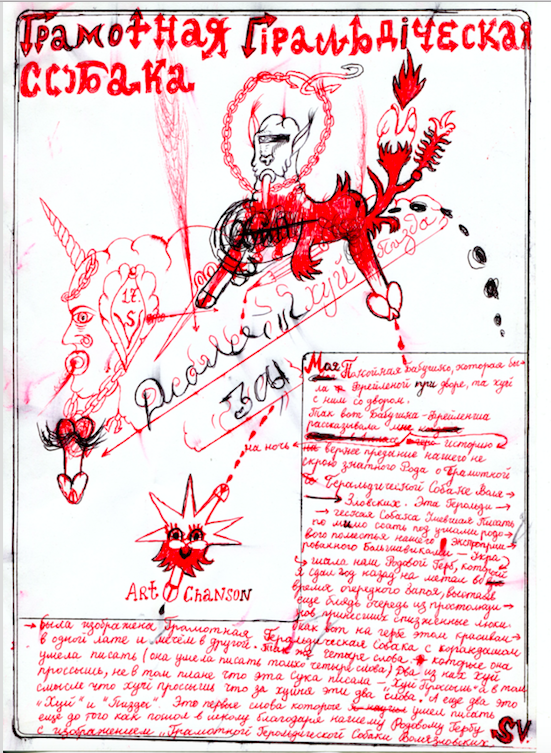 Грамотная Гіральдіческая
ССОБАКА
17
S
хуй
пизда
Рассказ
Моя Покойная бабушка, которая бы-
ла Фрейленой при дворе, та хуй
с ним со двором.
Так вот Бабушка-Фрейленша
рассказывала мне
историю
на ночь
вернее предание нашего не
скрою знатного Рода о Грамотной
Геральдической Собаке Валя
Зловских. Эта Геральди
ческая Собака Умевшая Писать
помимо ссать под углами родо-
вого поместья нашего Экспроприи
рованного Большавиками - Укра
шала наш Родовой Герб, который
я сдал год назад на метал во
время очередного запоя, выстояв
еще блядь очередь из простолюди
нов принёсших спизженные люки.
Так вот на гербе этом красивом
была изображена Грамотная Геральдическая Собака с карандашом
в одной лапе и мечём в другой. Так же четыре слова которые она
умела писать (она умела писать только четыре слова) Два из них хуй
проссышь, не в том плане что эта сука писала - "Хуй Проссышь" а в том
смысле что хуй проссышь что за хуйня эти два слова. А еще два это
"Хуй" и "Пизда". Это первые слова которое я умел писать
ещё до того как пошол в школу благодаря нашему Родовому Гербу
с изображением "Грамотной Геральдической Собаки
Art Chanson
SV.